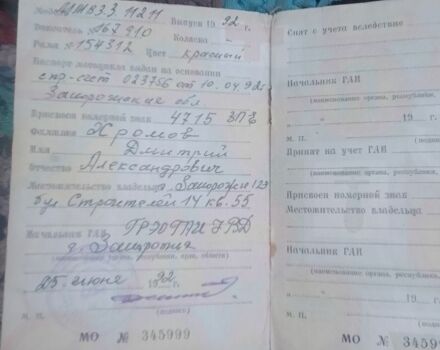 Модель ММВЗ 3 11211 Выпуск 19 92 г.
Двигатель № 967910 Коляска —
Рама № 154312 Цвет красный
Паспорт мотоцикла выдан на основании
спр-счет 023756 от 10.04.92г
Запорожская обл
Присвоен номерной знак 4715 ЗПЕ
Фамилия Хромов
Имя Дмитрий
Отчество Александрович
Местожительство владельца г. Запорожье
ул Строителей 14 кв. 55
Начальник ГАИ ГРЭОТИ УВД
г. Запорожья
(наименование органа, республики, края, области)
25 июня 19 92 г.
(подпись)
М. П.
МО № 345999
Снят с учета вследствие
Начальник ГАИ
(наименование органа, республики,
19 г.
М. П. (подпись)
Принят на учет ГАИ
(наименование органа, республики,
Присвоен номерной знак
Местожительство владельца
Начальник ГАИ
(наименование органа, республики,
19 г.
М. П. (подпись)
МО № 345999